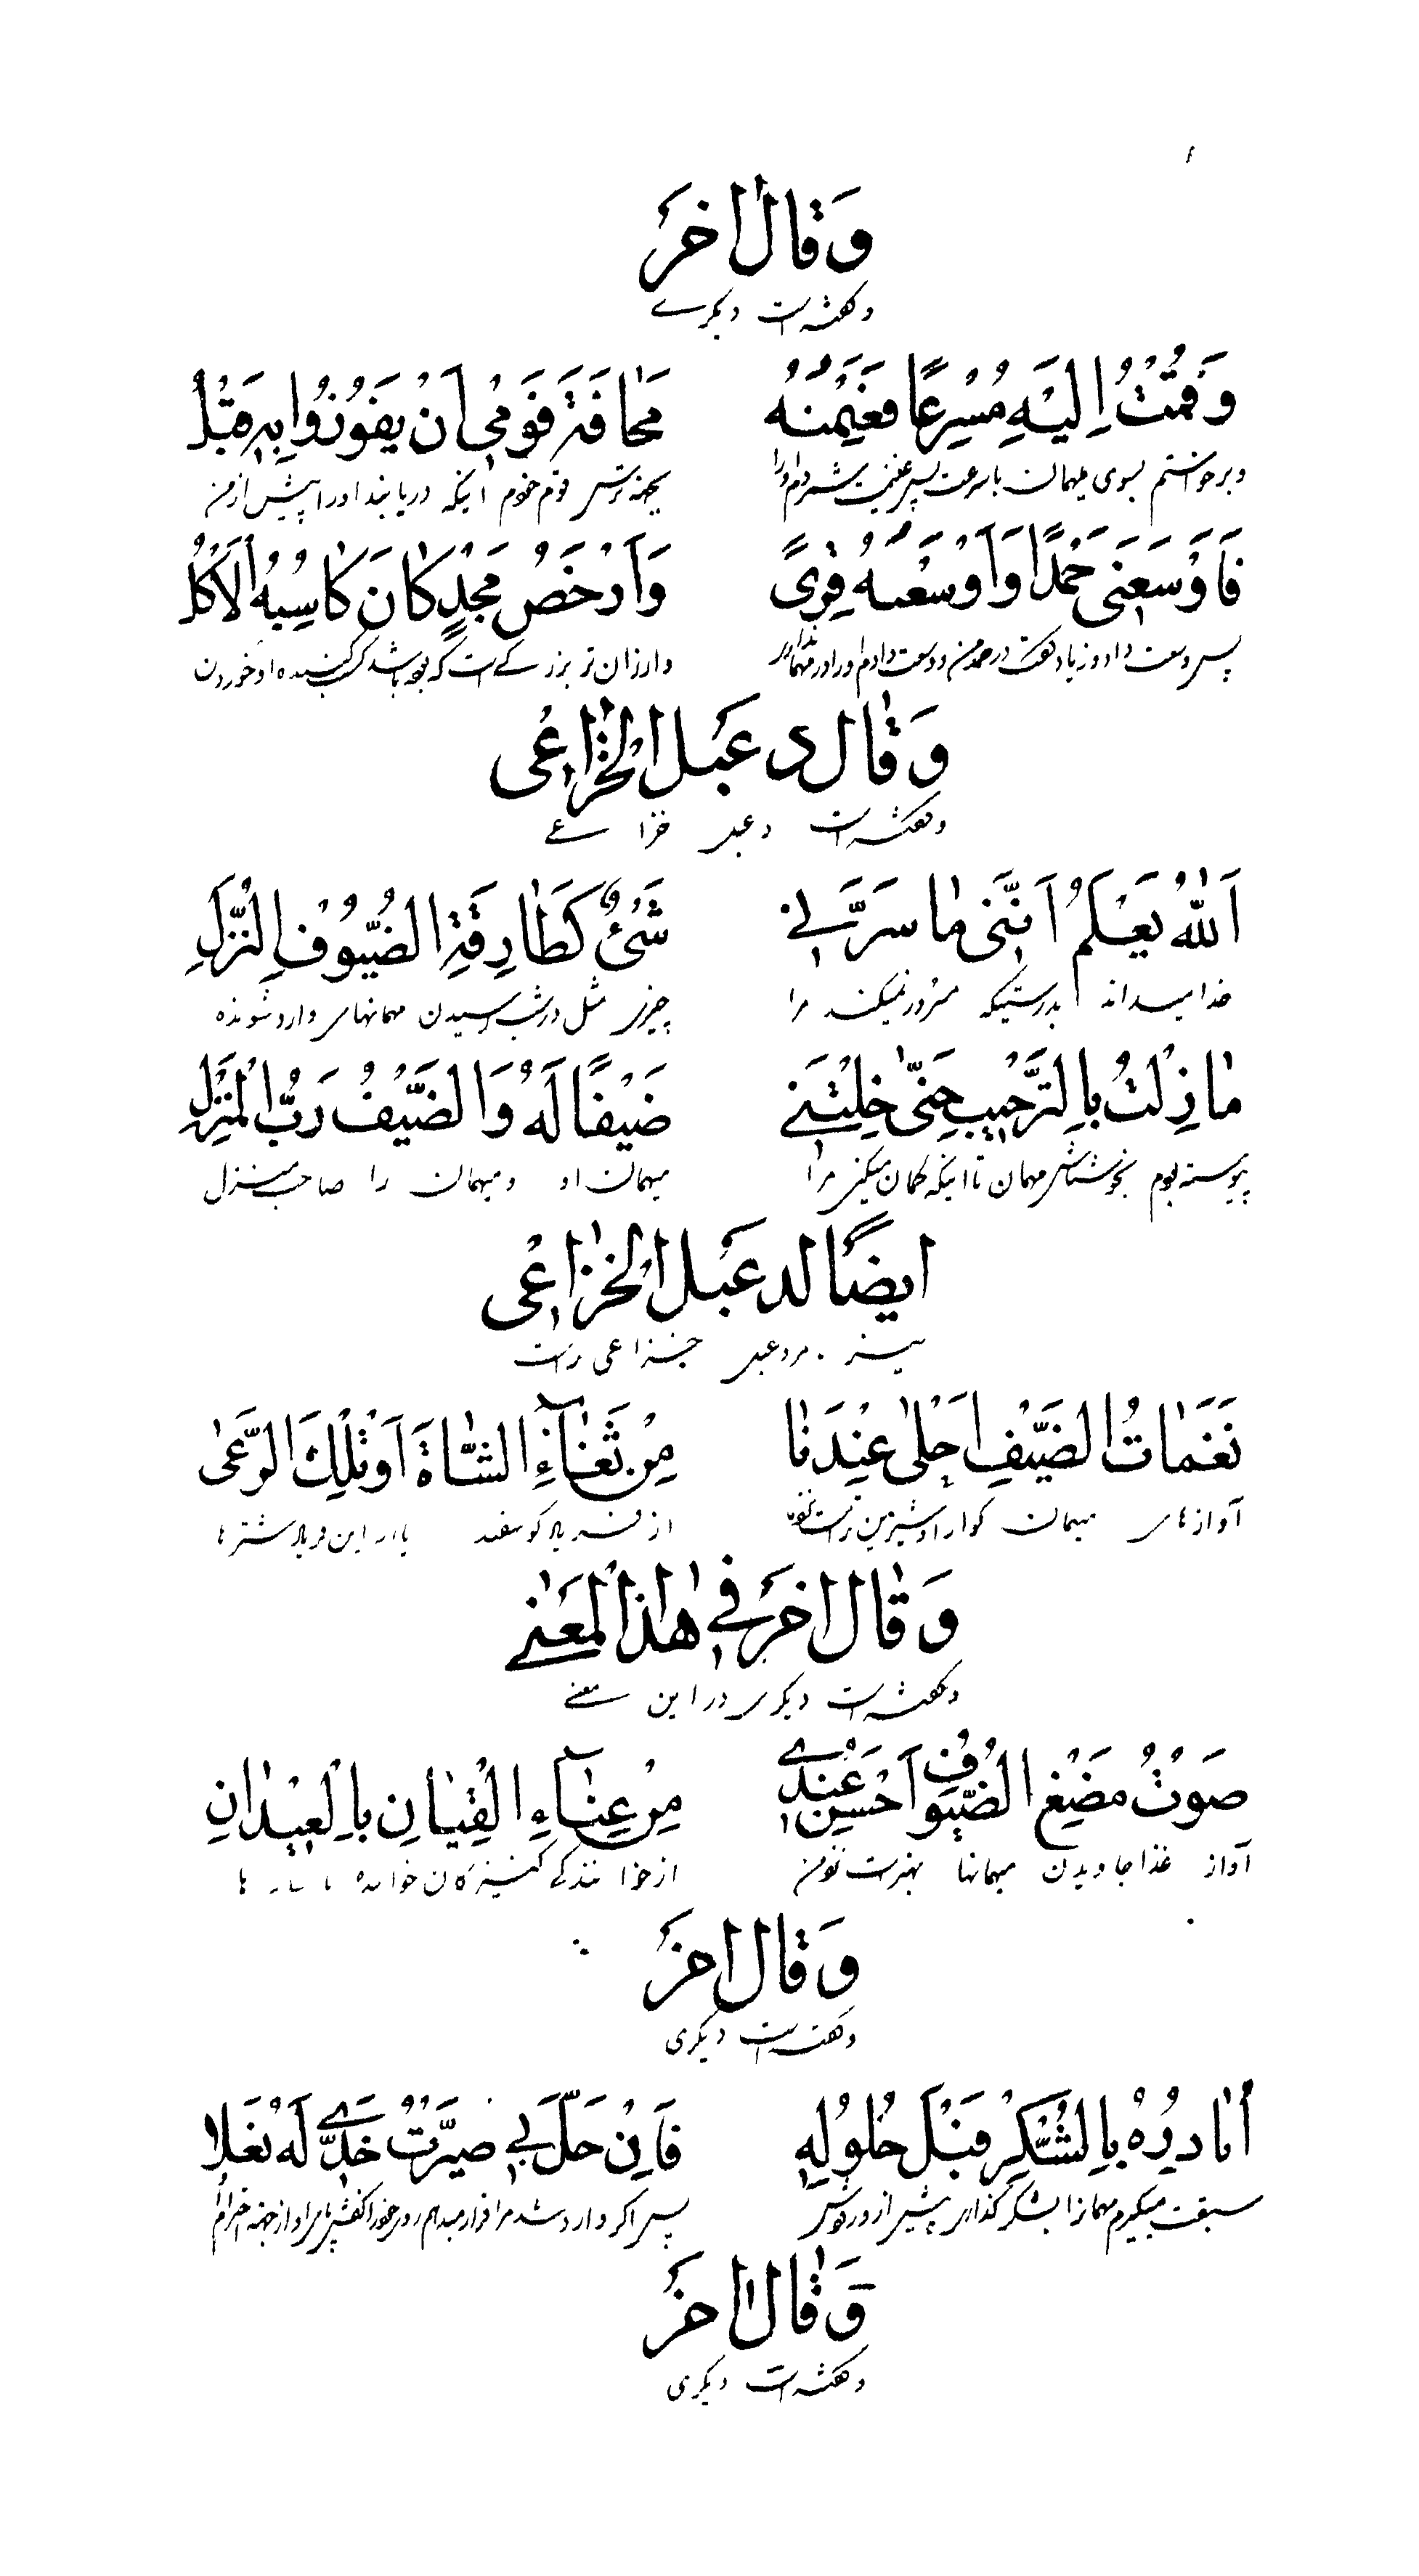 وَقَالَ اخَرُ
و گفته است دیگرے
وَقُمْتُ اِلَيْهِ مُسْرِعًا فَغَنِمْتُهُ مَخٰافَةَ قَوْمٖي اَنْ يَفُوزُوا بِهٖ قَبْلُ
و برخواستم بسوی میهمان باسرعت پس غنیمت شمردم او را بجهة ترس قوم خودم اینکه دریابند او را پیش از من
فَاَوْسَعَنٖي حَمْدًا وَاَوْسَعْتُهُ قِرًى وَاَرْخَصُ مَجْدٍ كٰانَ كٰاسِبُهُ الْاَكْلُ
پس وسعت داد و زیاد در حمد من و وسعت دادم او را در و ارزان تر بزرگے است که بوده باشد کسب کننده او خوردن
وَقٰالَ دِعْبِلُ الْخُزٰاعٖي
و گفته است دعبل خزاعے
اَللّٰهُ يَعْلَمُ اَنَّنٖي مٰا سَرَّنٖي شَيْءٌ كَطٰارِقَةِ الضُّيُوفِ النُّزَّلِ
خدا میداند بدرستیکه مسرور نمیکند مرا چیزی مثل در شب رسیدن مهمانهای وارد شونده
مٰا زِلْتُ بِالتَّرْحٖيبِ حَتّٰى خِلْتَنٖي ضَيْفًا لَهُ وَالضَّيْفُ رَبُّ الْمَنْزِلِ
پیوسته بودم بخوشباش مهمان تا اینکه گمان میکنی مرا میهمان او و میهمان را صاحب منزل
ايضًا لدعبل الخزٰاعٖي
نیز مر دعبل خزاعی راست
نَغَمٰاتُ الضَّيْفِ اَحْلٰى عِنْدَنٰا مِنْ ثُغٰاءِ الشّٰاةِ اَوْ تِلْكَ الرُّغٰى
آوازهای میهمان گوارا و شیرین تر است نزد از فریاد گوسفند یا از این فریاد شترها
وَقٰالَ اخَرُ فٖي هٰذَا الْمَعْنٰى
و گفته است دیگری در این معنے
صَوْتُ مَضْغِ الضُّيُوفِ اَحْسَنُ عِنْدٖي مِنْ غِنٰاءِ الْقِيٰانِ بِالْعٖيدٰانِ
آواز غذا جاویدن میهمانها بهتر است نزد من از خوانندگے کنیزکان خواننده با ها
وَقٰالَ اخَرُ
و گفته است دیگری
اُبٰادِرُهُ بِالشُّكْرِ قَبْلَ حُلُولِهٖ فَاِنْ حَلَّ بٖي صَيَّرْتُ خَدّٖي لَهُ نَعْلًا
سبقت میگیرم مهمانرا بشکر گذاری پیش از ورودش پس اگر وارد شد مرا قرار میدهم روی خود را کفش پای او از جهة احترام
وَقٰالَ اخَرُ
و گفته است دیگری